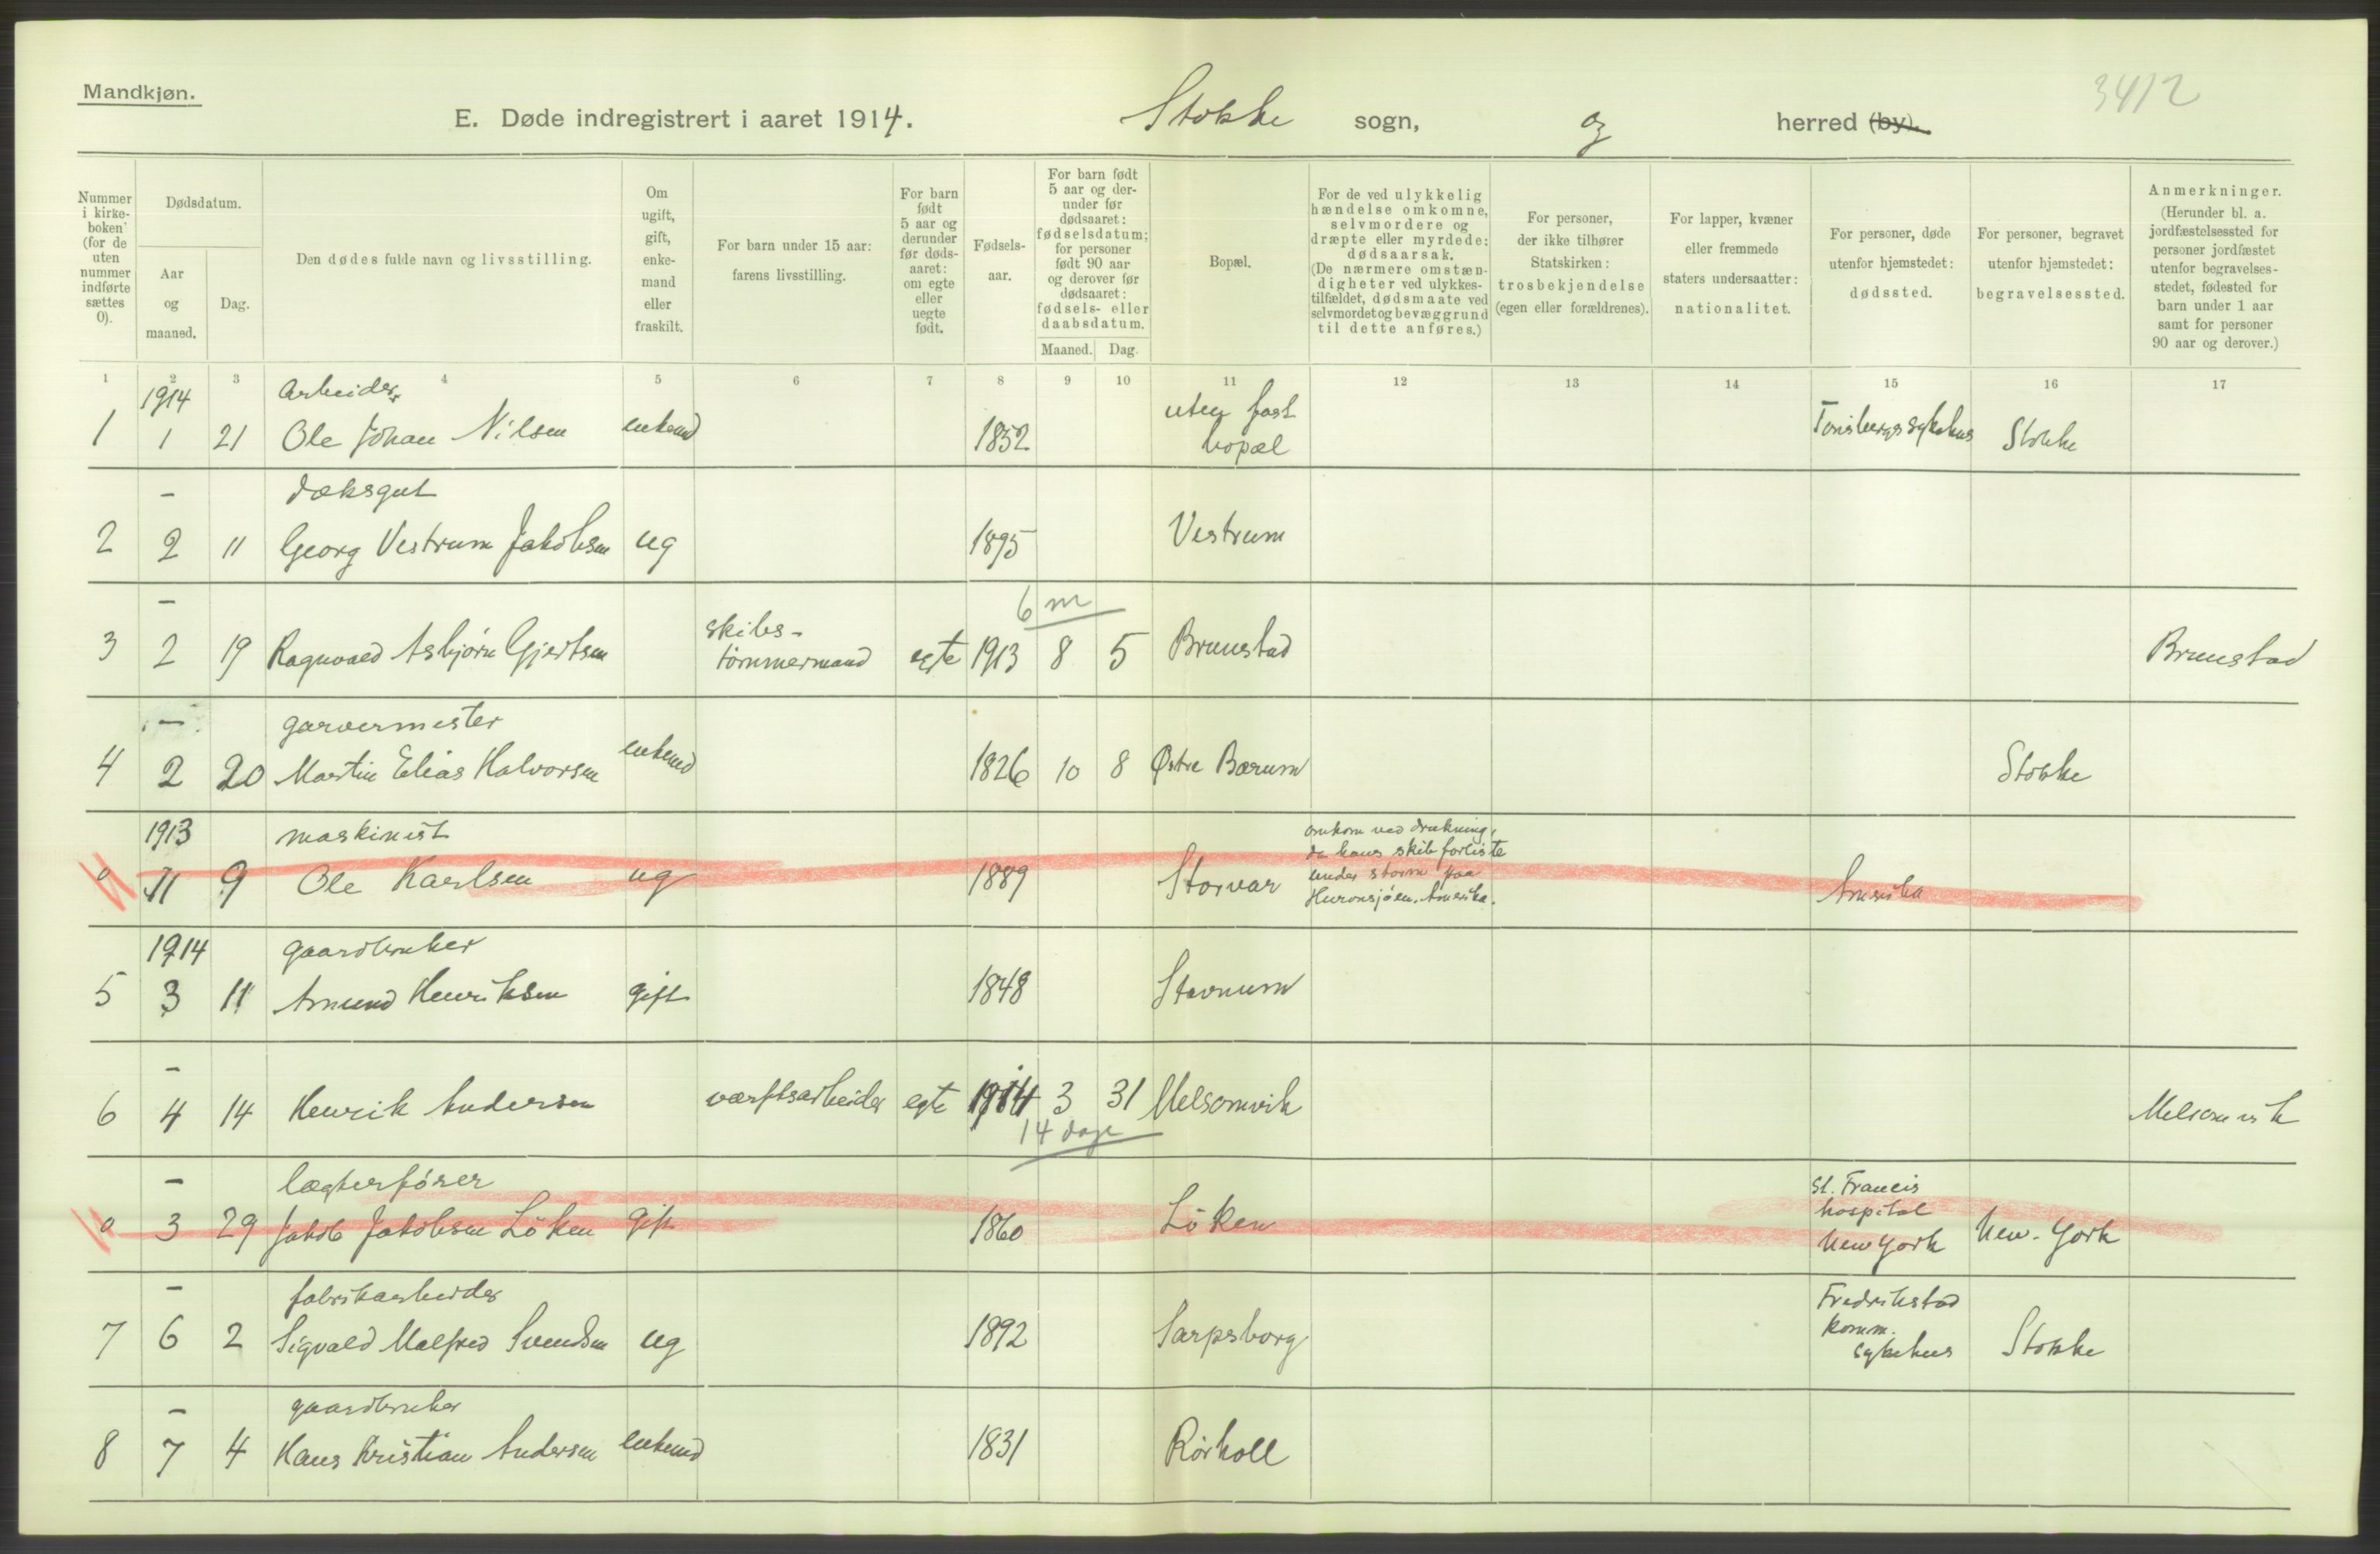 Mandkjøn.
3412
E. Døde indregistrert i aaret 1914. Stokke sogn, og herred (by).
Nummer i kirke- boken (for de uten nummer indførte sættes 0).
Dødsdatum.
Aar og maaned.
Dag.
Den dødes fulde navn og livsstilling.
Om ugift, gift, enke- mand eller fraskilt.
For barn under 15 aar: farens livsstilling.
For barn født 5 aar og derunder før døds- aaret: om egte eller uegte født.
Fødsels- aar.
For barn født 5 aar og der- under før dødsaaret: fødselsdatum; for personer født 90 aar og derover før dødsaaret: fødsels- eller daabsdatum.
Maaned. Dag.
Bopæl.
For de ved ulykkelig hændelse omkomne, selvmordere og dræpte eller myrdede: dødsaarsak. (De nærmere omstæn- digheter ved ulykkes- tilfældet, dødsmaate ved selvmordet og bevæggrund til dette anføres.)
For personer, der ikke tilhører Statskirken: trosbekjendelse (egen eller forældrenes).
For lapper, kvæner eller fremmede staters undersaatter: nationalitet.
For personer, døde utenfor hjemstedet: dødssted.
For personer, begravet utenfor hjemstedet: begravelsessted.
Anmerkninger. (Herunder bl. a. jordfæstelsessted for personer jordfæstet utenfor begravelses- stedet, fødested for barn under 1 aar samt for personer 90 aar og derover.)
1 2 3 4 5 6 7 8 9 10 11 12 13 14 15 16 17
1914 Arbeider uten fast
1 1 21 Ole Johan Nilsen enkemd 1852 bopæl Tønsbergs sykehus Stokke
– dæksgut
2 2 11 Georg Vestrum Jakobsen ug 1895 Vestrum
– 6 m
skibs-
3 2 19 Ragnvald Asbjørn Gjertsen tømmermand egte 1913 8 5 Brunstad Brunstad
– garvermester
4 2 20 Martin Elias Halvorsen enkemd 1826 10 8 Østre Bærum Stokke
1913 maskinist omkom ved drukning,
da hans skib forliste
0 11 9 Ole Karlsen ug 1889 Storvar under storm paa Amerika
Huronsjøen. Amerika.
1914 gaardbruker
5 3 11 Amund Henriksen gift 1848 Stavnum
–
6 4 14 Henrik Andersen værftsarbeider egte 1914 3 31 Melsomvik Melsomvik
14 dage
– lægterfører St. Francis
hospital
0 3 29 Jakob Jakobsen Löken gift 1860 Löken New York New-York
– fabrikarbeider Fredrikstad
komm.
7 6 2 Sigvald Malfred Svendsen ug 1892 Sarpsborg sykehus Stokke
– gaardbruker
8 7 4 Hans Kristian Andersen enkemd 1831 Rörkoll